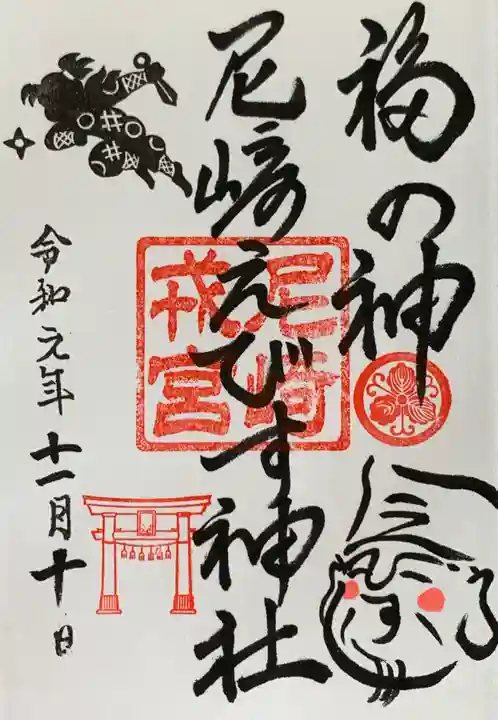 福の神
尼崎えびす神社
尼崎
戎宮
令和元年十一月十日